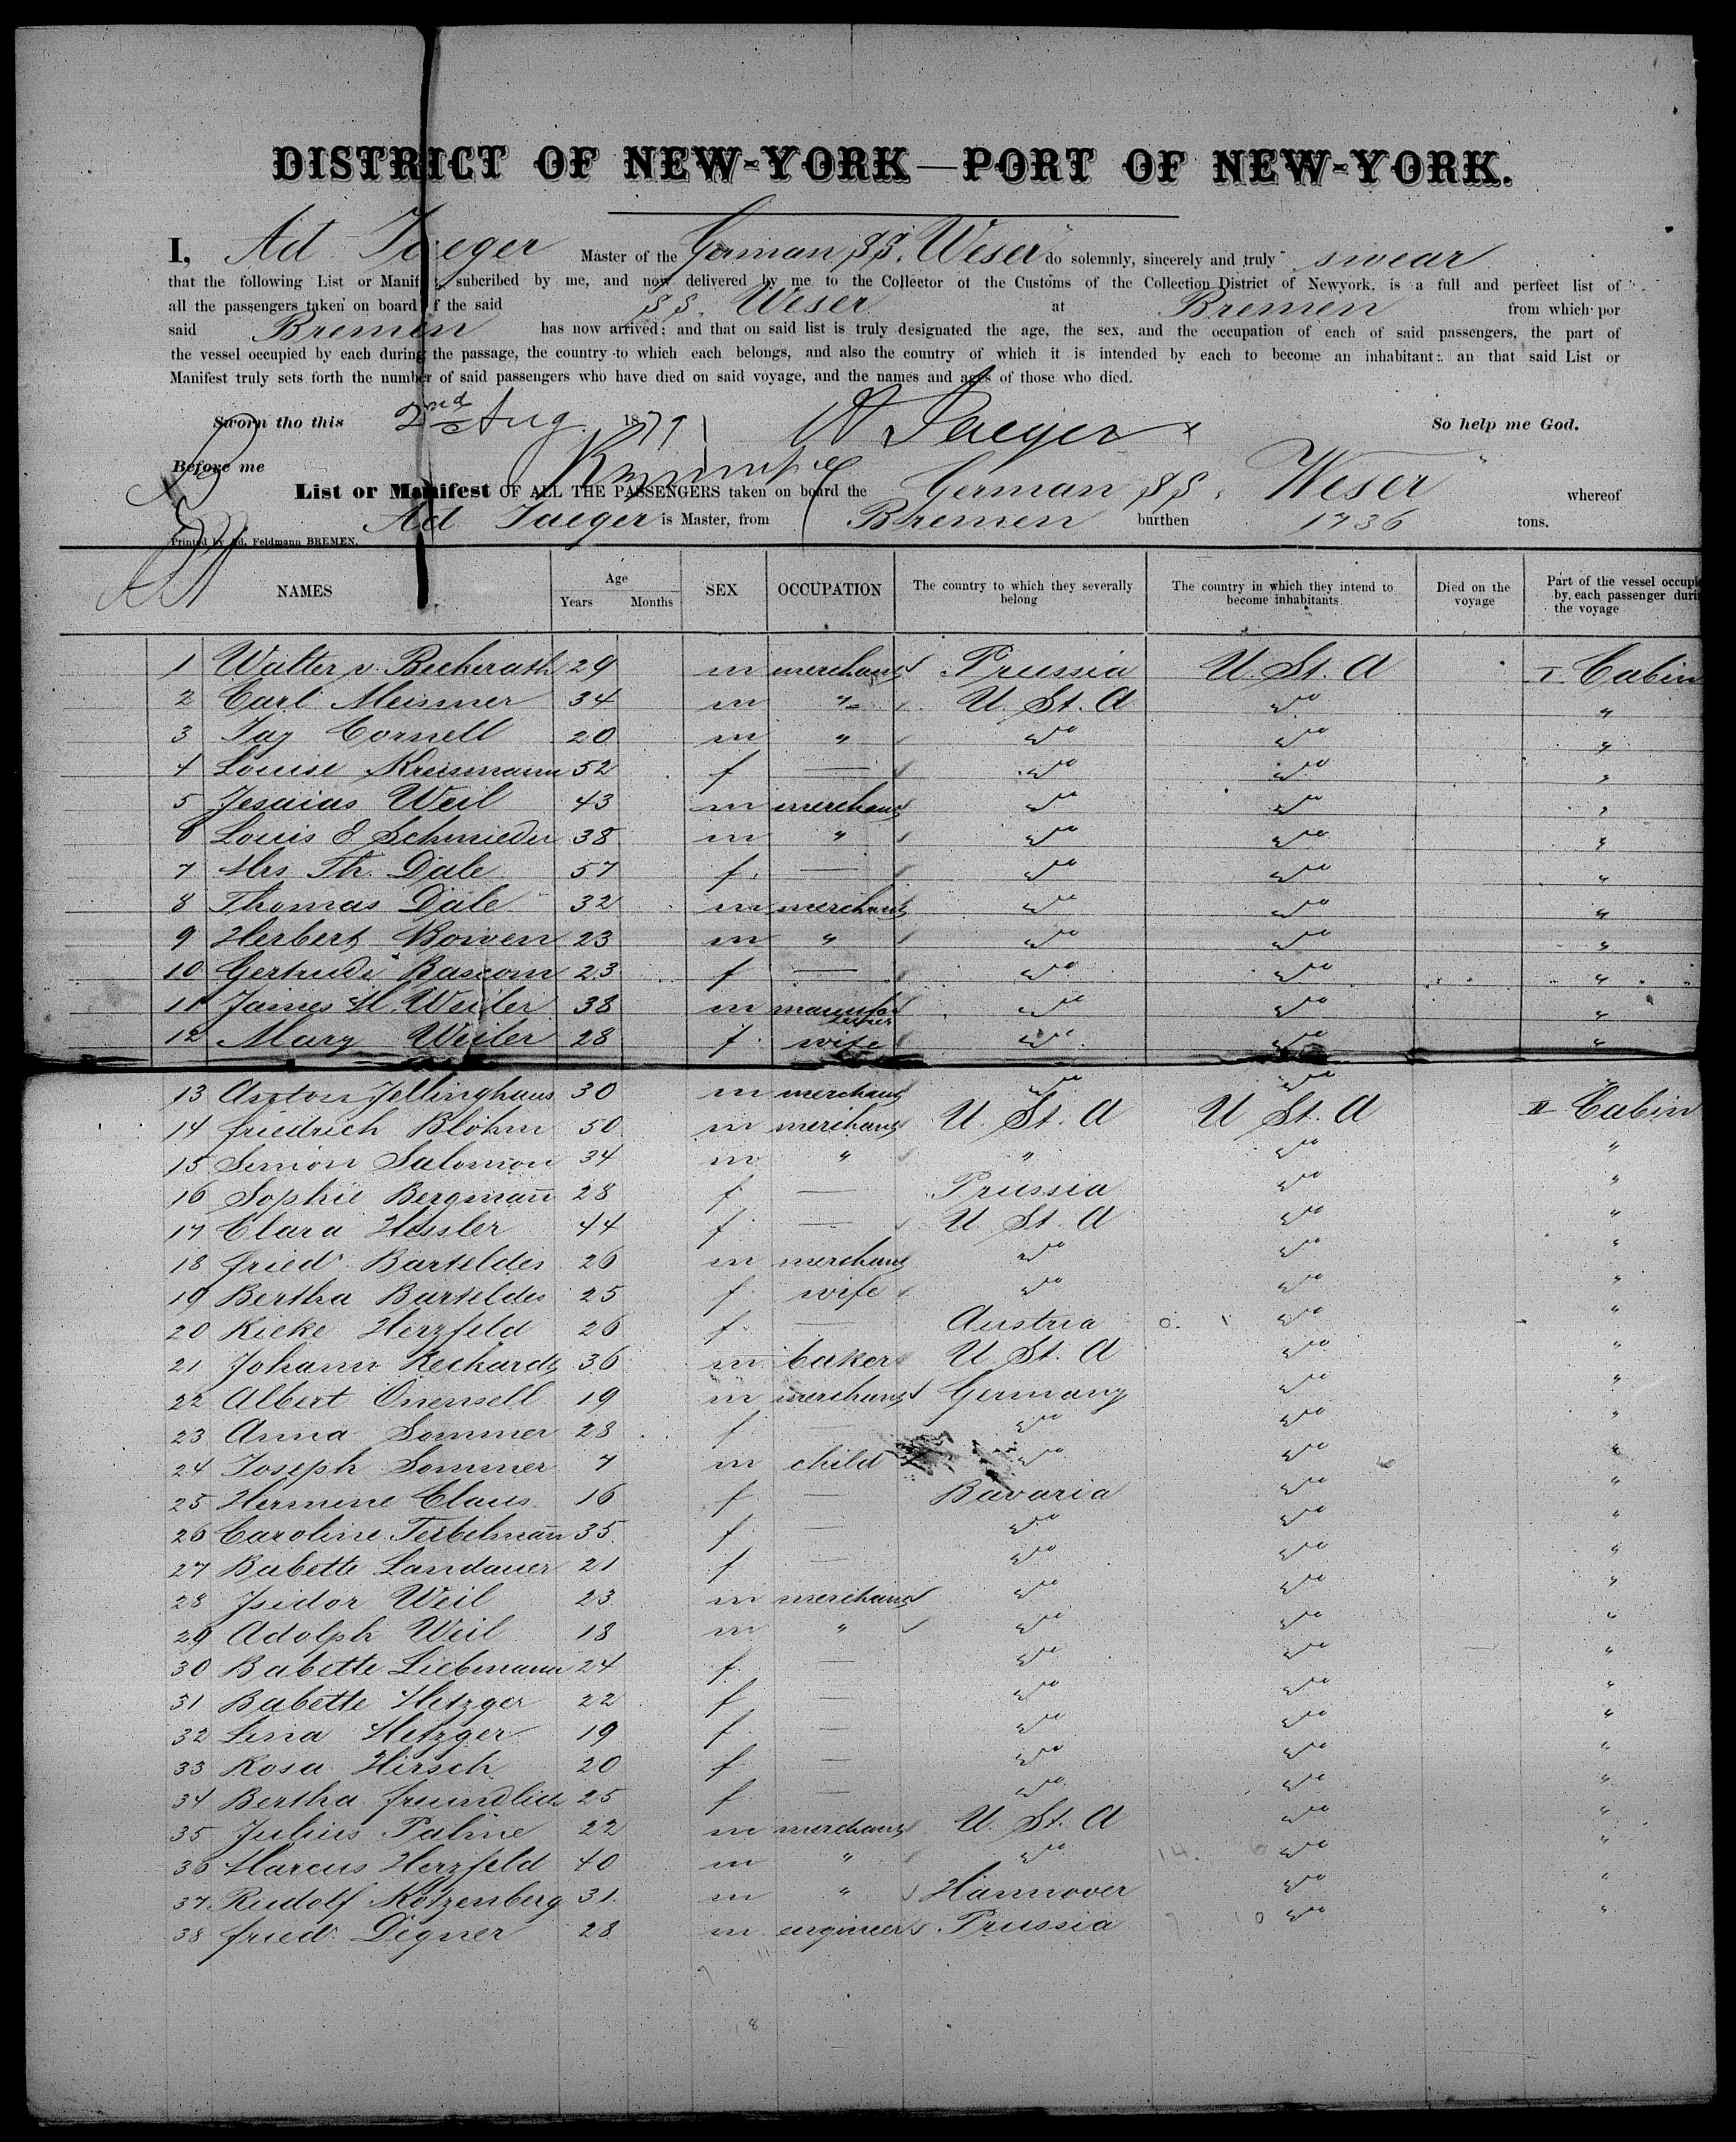 DISTRICT OF NEW-YORK—PORT OF NEW-YORK.
I, Ad Jaeger Master of the German SS. Weser do solemnly, sincerely and truly swear
that the following List or Manifest, subcribed by me, and now delivered by me to the Collector of the Customs of the Collection District of Newyork, is a full and perfect list of
all the passengers taken on board of the said SS. Weser at Bremen from which por
said Bremen has now arrived; and that on said list is truly designated the age, the sex, and the occupation of each of said passengers, the part of
the vessel occupied by each during the passage, the country to which each belongs, and also the country of which it is intended by each to become an inhabitant: an that said List or
Manifest truly sets forth the number of said passengers who have died on said voyage, and the names and ages of those who died.
Sworn tho this 2nd Aug. 1879 A Jaeger So help me God.
Before me
List or Manifest OF ALL THE PASSENGERS taken on board the German SS. Weser whereof
Ad Jaeger is Master, from Bremen burthen 1736 tons.
Printed by Ad. Feldmann BREMEN.
NAMES Age Years Months SEX OCCUPATION The country to which they severally belong The country in which they intend to become inhabitants Died on the voyage Part of the vessel occupied by each passenger during the voyage
1 Walter v. Beckerath 29 m merchant Prussia U. St. A I Cabin
2 Carl Meissner 34 m " U. St. A do "
3 Jay Cornell 20 m " do do "
4 Louise Kreismann 52 f — do do "
5 Jesaias Weil 43 m merchant do do "
6 Louis E Schmieder 38 m " do do "
7 Mrs. Th. Dale 57 f. — do do "
8 Thomas Dale 32 m merchant do do "
9 Herbert Bowen 23 m " do do "
10 Gertrude Bascom 23 f — do do "
11 James H. Weiler 38 m manufacturer do do "
12 Mary Weiler 28 f. wife do do "
13 Anton Jellinghaus 30 m merchant do do
14 Friedrich Blöhm 50 m merchant U. St. A U St. A II Cabin
15 Simon Salomon 34 m " " do "
16 Sophie Bergmañ 28 f — Prussia do "
17 Clara Hessler 44 f — U St. A do "
18 Fried. Barteldes 26 m merchant do do "
19 Bertha Barteldes 25 f wife do do "
20 Rieke Herzfeld 26 f — Austria do "
21 Johann Reckardt 36 m baker U. St. A do "
22 Albert Onensell 19 m merchant Germany do "
23 Anna Sommer 28 f — do do "
24 Joseph Sommer 7 m child do do "
25 Hermine Claus 16 f — Bavaria do "
26 Caroline Teibelmañ 35 f — do do "
27 Babette Landauer 21 f — do do "
28 Isidor Weil 23 m merchant do do "
29 Adolph Weil 18 m " do do "
30 Babette Liebmann 24 f. — do do "
31 Babette Metzger 22 f — do do "
32 Lina Metzger 19 f — do do "
33 Rosa Hirsch 20 f — do do "
34 Bertha Freundlich 25 f — do do "
35 Julius Palme 22 m merchant U. St. A do "
36 Marcus Herzfeld 40 m " do do "
37 Rudolf Kotzenberg 31 m " Hannover do "
38 Fried. Digner 28 m engineer Prussia do "